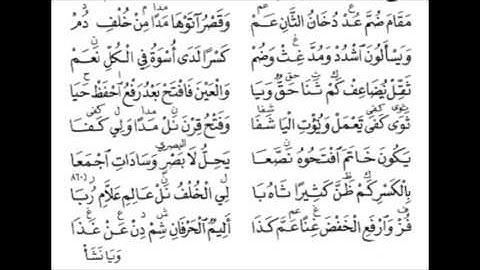 مَقَامَ ضُمَّ عُدْ دُخَانُ الثَّانِ عَمْ وَقَصْرُ آتَوْهَا مَدًا مِنْ خُلْفِ دُمْ
وَيَسْأَلُونَ اشْدُدْ وَمُدَّ غِثْ وَضُمْ كَسْرًا لَدَى أُسْوَةٌ فِي الْكُلِّ نَعَمْ
ثَقِّلْ يُضَاعِفْ كَمْ ثَنَا حَقٌّ وَيَا وَالْعَيْنَ فَافْتَحْ بَعْدُ رَفْعُ احْفَظْ حَيَا
ثَوَى كَفَى تَعْمَلْ وَيُؤْتِ الْيَا شَفَا وَفَتْحُ قِرْنَ نَلْ مَدًا وَلِي كَفَا
يَكُونَ خَاتَمَ افْتَحُوهُ نَصَّعَا يَحِلُّ لَا بَصْرٍ وَسَادَاتِ اجْمَعَا
بِالْكَسْرِ كَمْ ظَنَّ كَثِيرًا ثَاهُ بَا لِي الْخُلْفُ نَلْ عَالِمِ عَلَّامِ رُبَا
فُزْ وَارْفَعِ الْخَفْضَ غِنًا عَمَّ كَذَا أَلِيمٌ الْحَرْفَانِ شِمْ دِنْ عَنْ غَذَا
وَيَا نَشَأْ